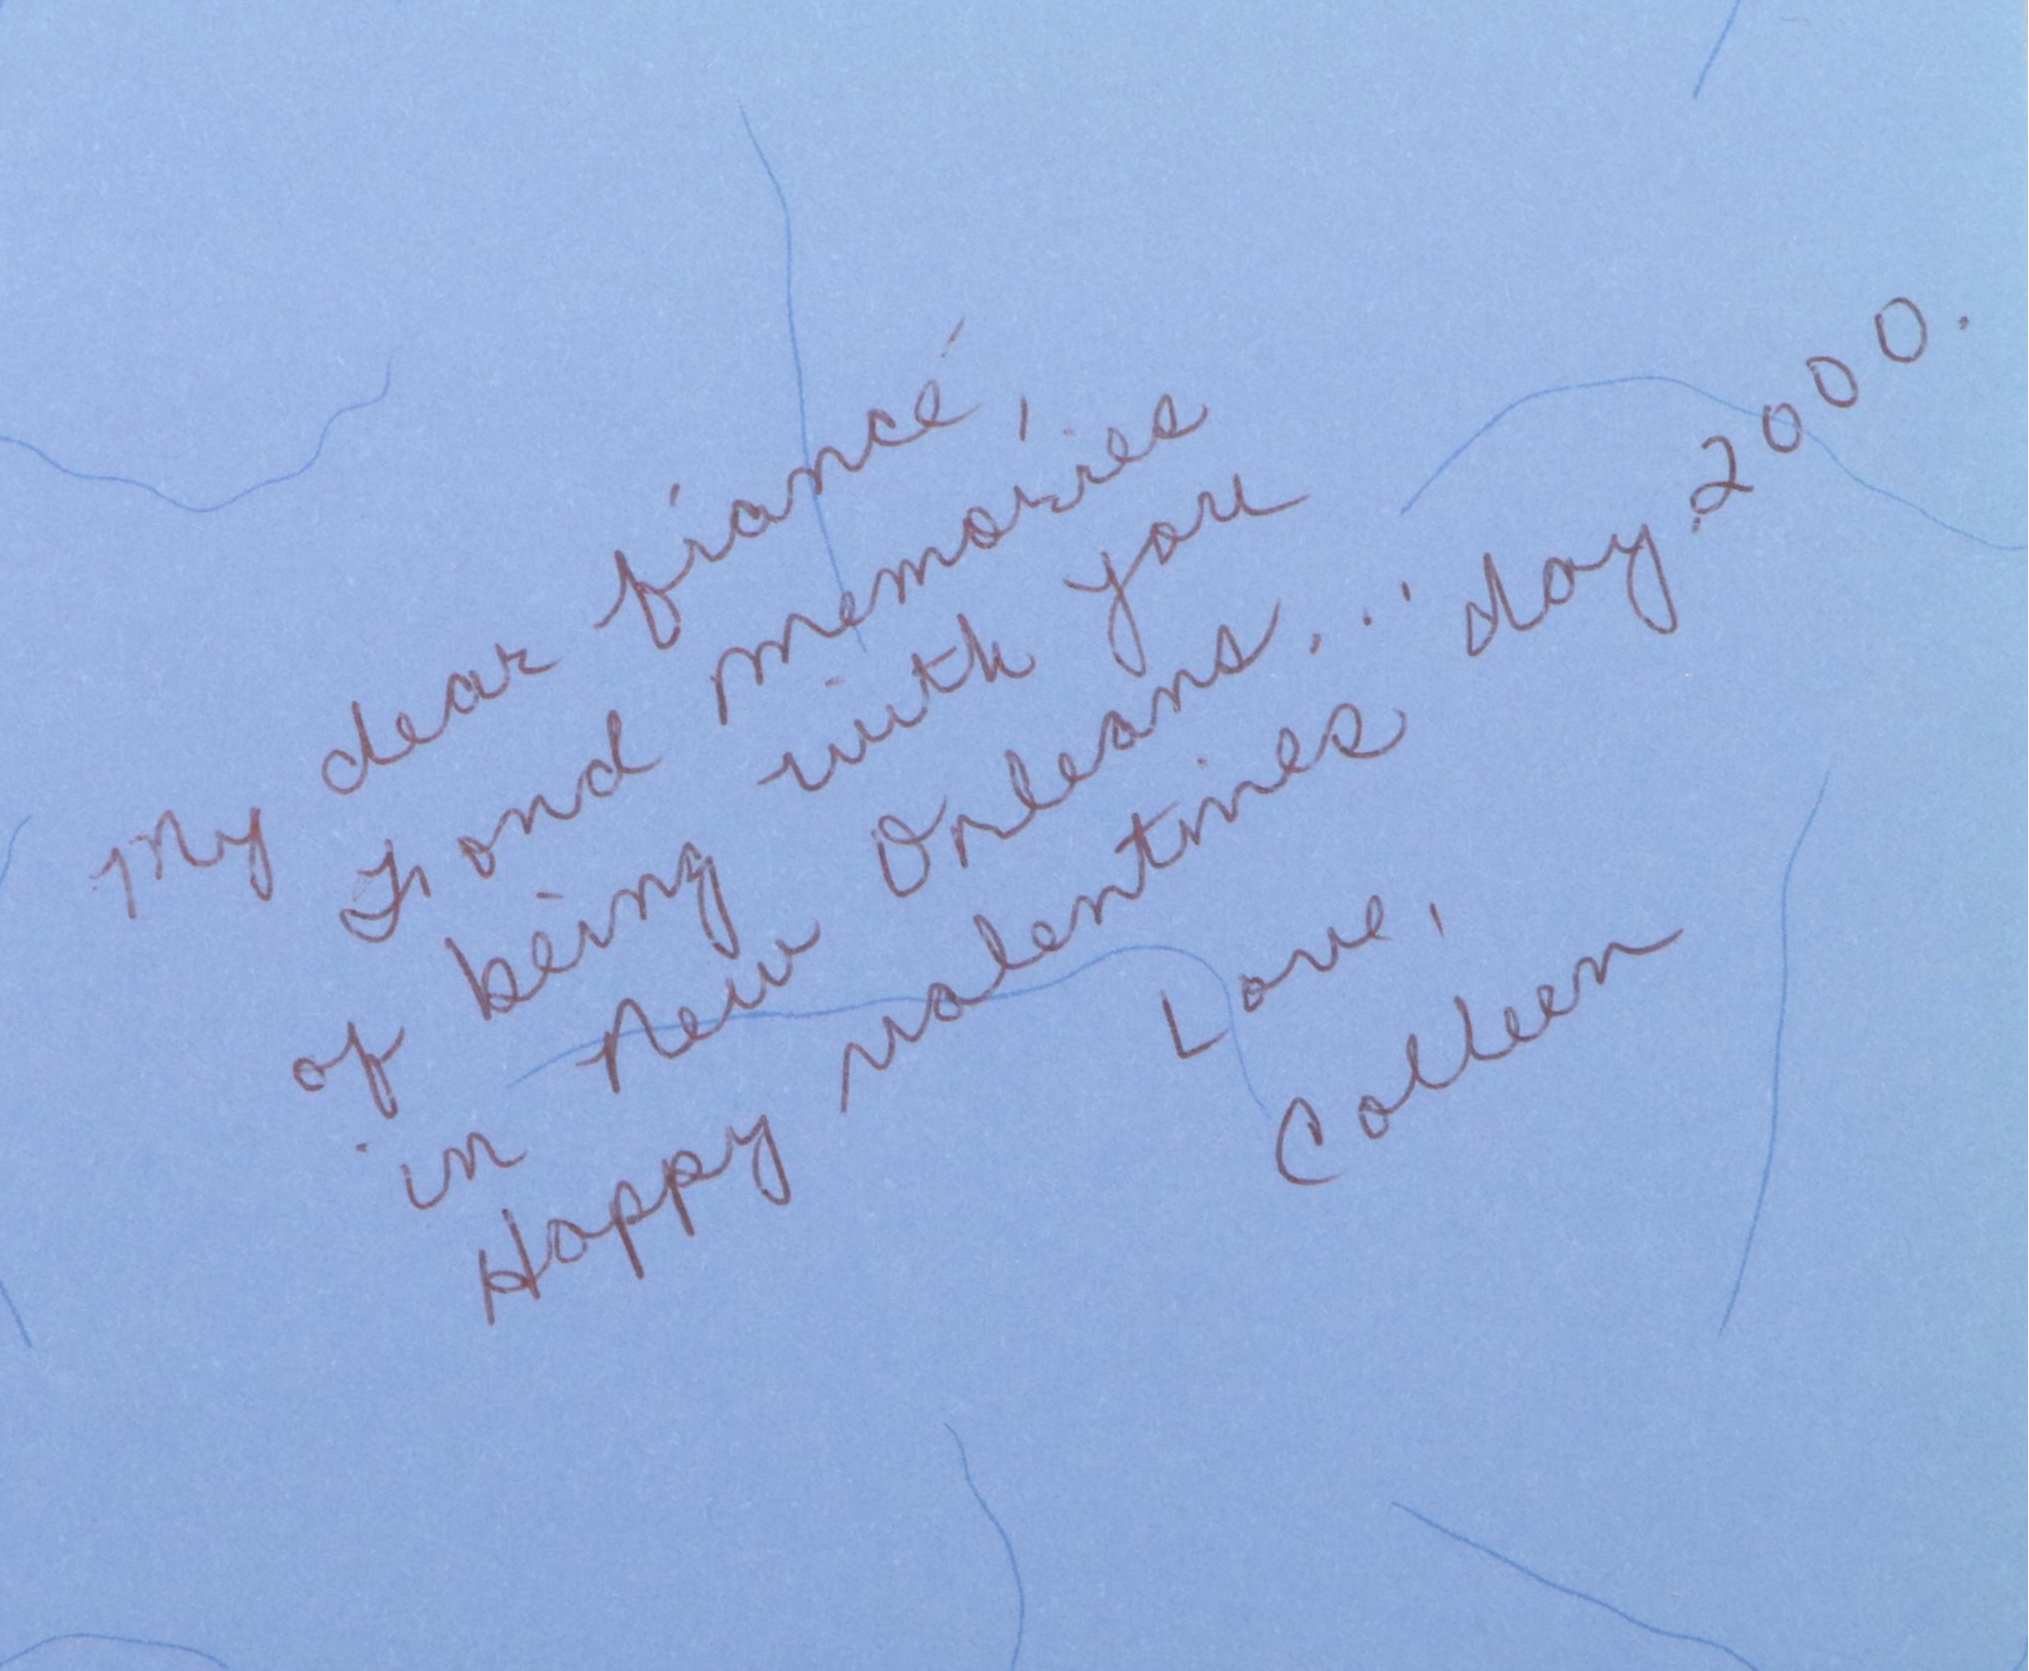 My dear fiancé,
Fond memories
of being with you
in New Orleans...
Happy valentines day 2000.
Love,
Colleen